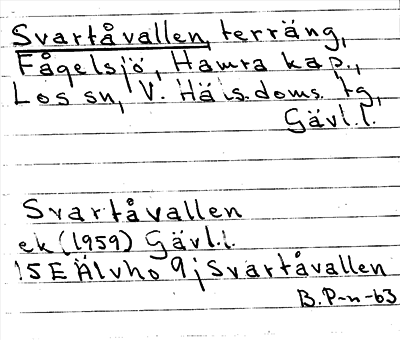 Svartåvallen, terräng,
Fågelsjö, Hamra kap.,
Los sn, V. Häls. doms. tg,
Gävl.l.
Svartåvallen
ek (1959) Gävl.l.
15E Älvho 9j Svartåvallen
B. P-n-63